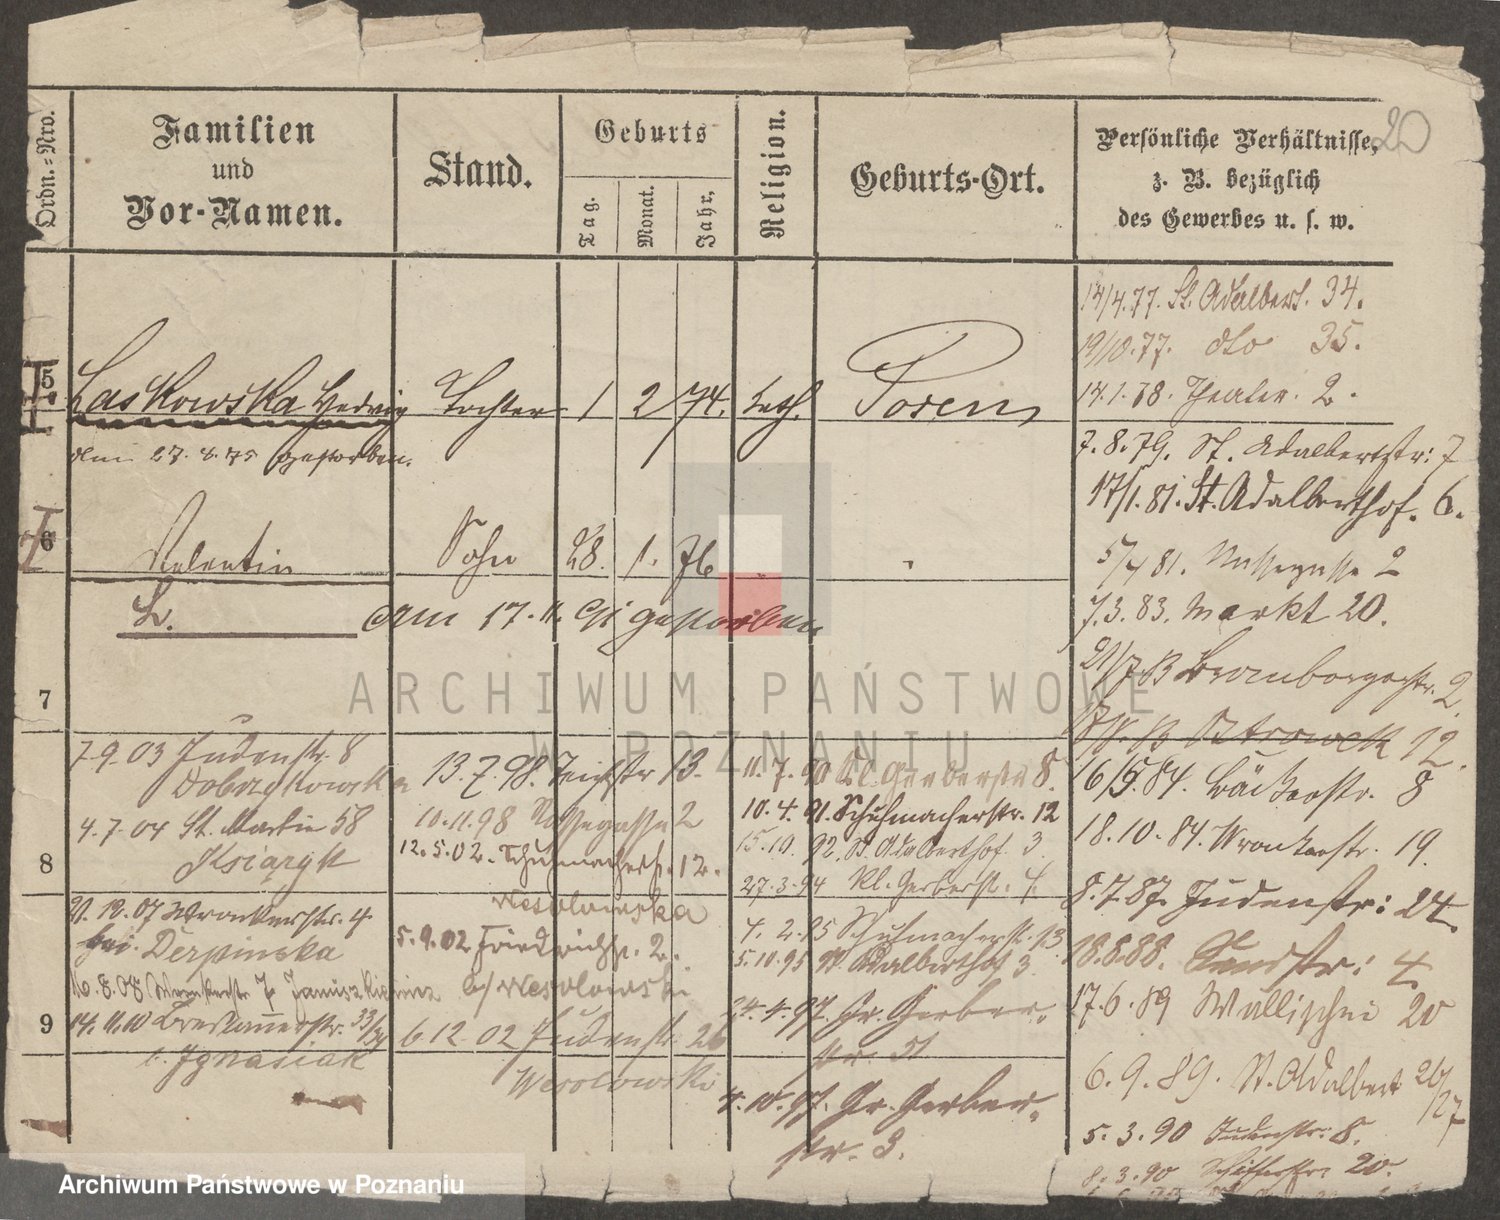 20
Ordn.-Nro.
Familien
und
Vor-Namen.
Stand.
Geburts
Tag.
Monat.
Jahr.
Religion.
Geburts-Ort.
Persönliche Verhältnisse,
z. B. bezüglich
des Gewerbes u. s. w.
14/4.77. St. Adalbert. 34.
19/10.77. dto 35.
14.1.78. Theater. 2.
5 Laskowska Hedwig Tochter 1 2 74. kath. Posen
den 27.4.75 gestorben.
7.8.79. St. Adalbertstr: 7
17/1.81. St. Adalberthof. 6.
6 Valentin Sohn 28. 1. 76
L. am 17.11. gestorben
5/4 81. Nassegasse 2
7.3.83. Markt 20.
21/7.83 Brombergerstr. 2.
7
12.
16/5.84. Bäckerstr. 8
18.10.84. Wronkerstr. 19.
8.7.87. Judenstr: 24.
18.8.88. Sandstr: 4
17.6.89 Wallischei 20
6.9.89. St. Adalbert 26/27
5.3.90 Judenstr: 8.
8.3.90 Schifferstr: 20.
7.9.03 Judenstr. 8
Dobrzykowska
4.7.04 St. Martin 58
Książyk
8
21.12.07 Wronkerstr. 4.
bei Derpinska
16.8.08 Wronkerstr 7 Januszkiewicz
9 14.11.10 Breslauerstr. 33/34
b. Ignasiak
13.7.98. Teichstr 13.
10.11.98 Nassegasse 2
12.5.02. Schuhmacherstr. 12.
Wesolowska
5.9.02 Friedrichstr. 2.
b/ Wesolowski
6.12.02 Judenstr 26
Wesolowski
11.7.90 Kl. Gerberstr 8.
10.4.91. Schuhmacherstr. 12
15.10.92. St. Adalberthof 3
27.3.94 Kl. Gerberstr. 4.
4.2.95 Schuhmacherstr. 13
5.10.95 St. Adalberthof 3.
24.4.97. Gr. Gerber-
str. 51
4.10.97. Gr. Gerber-
str. 3.
ARCHIWUM PAŃSTWOWE
W POZNANIU
Archiwum Państwowe w Poznaniu